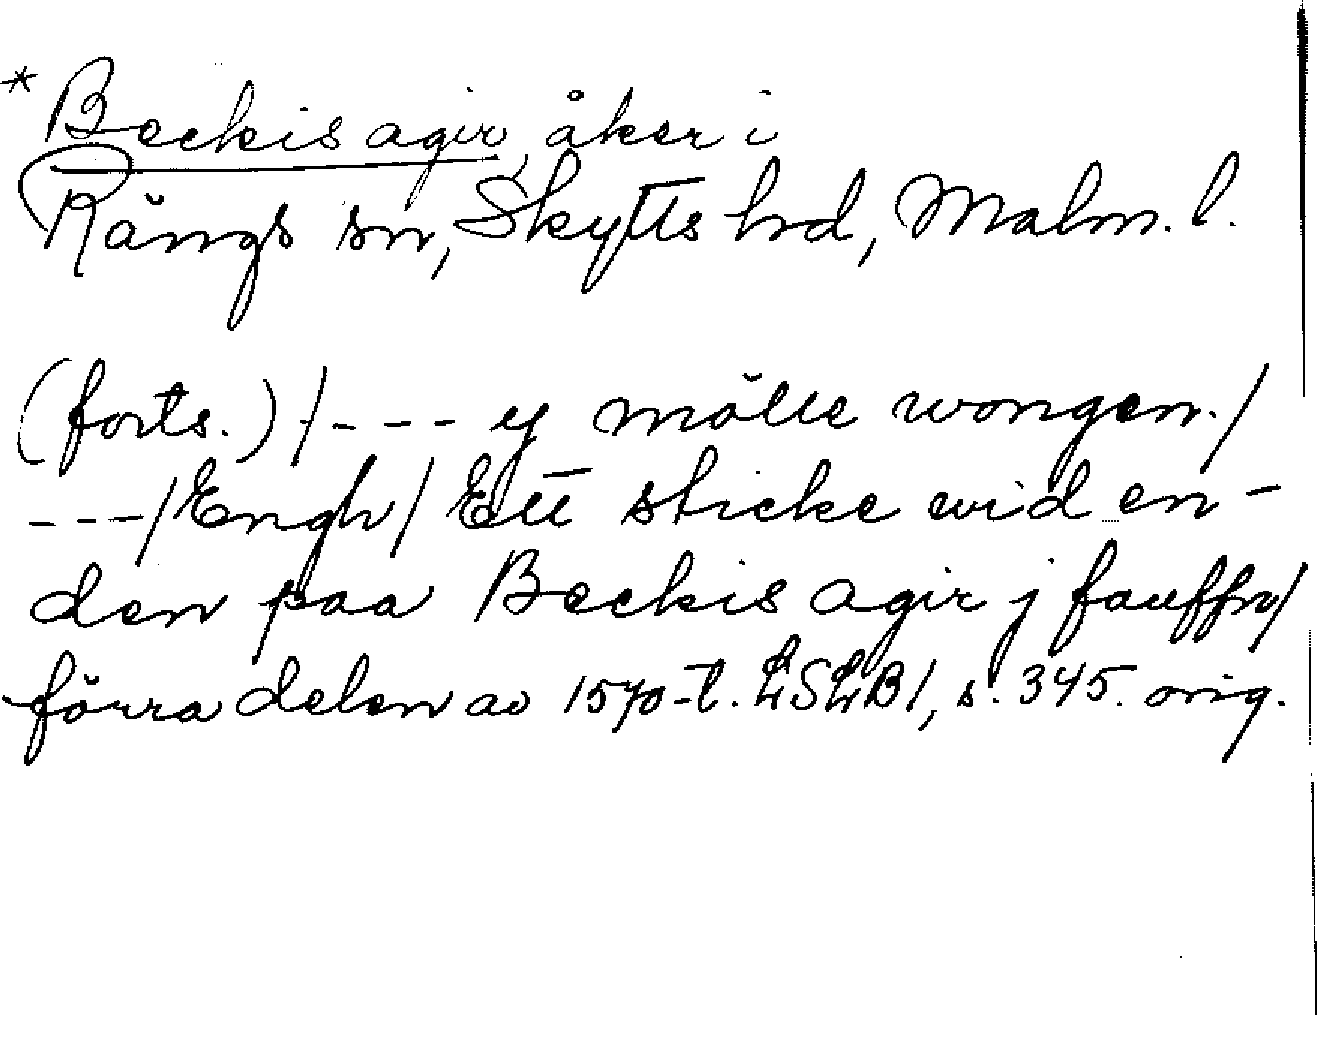 * Beckis agir, åker i
Rängs sn, Skytts hd, Malm. l.
(forts.) /- - - - y mölle wongen./
- - -/Engh/ Ett sticke wid en-
den paa Beckis agir j fauffn/
förra delen av 1570-t. LSLB1, s. 345. orig.